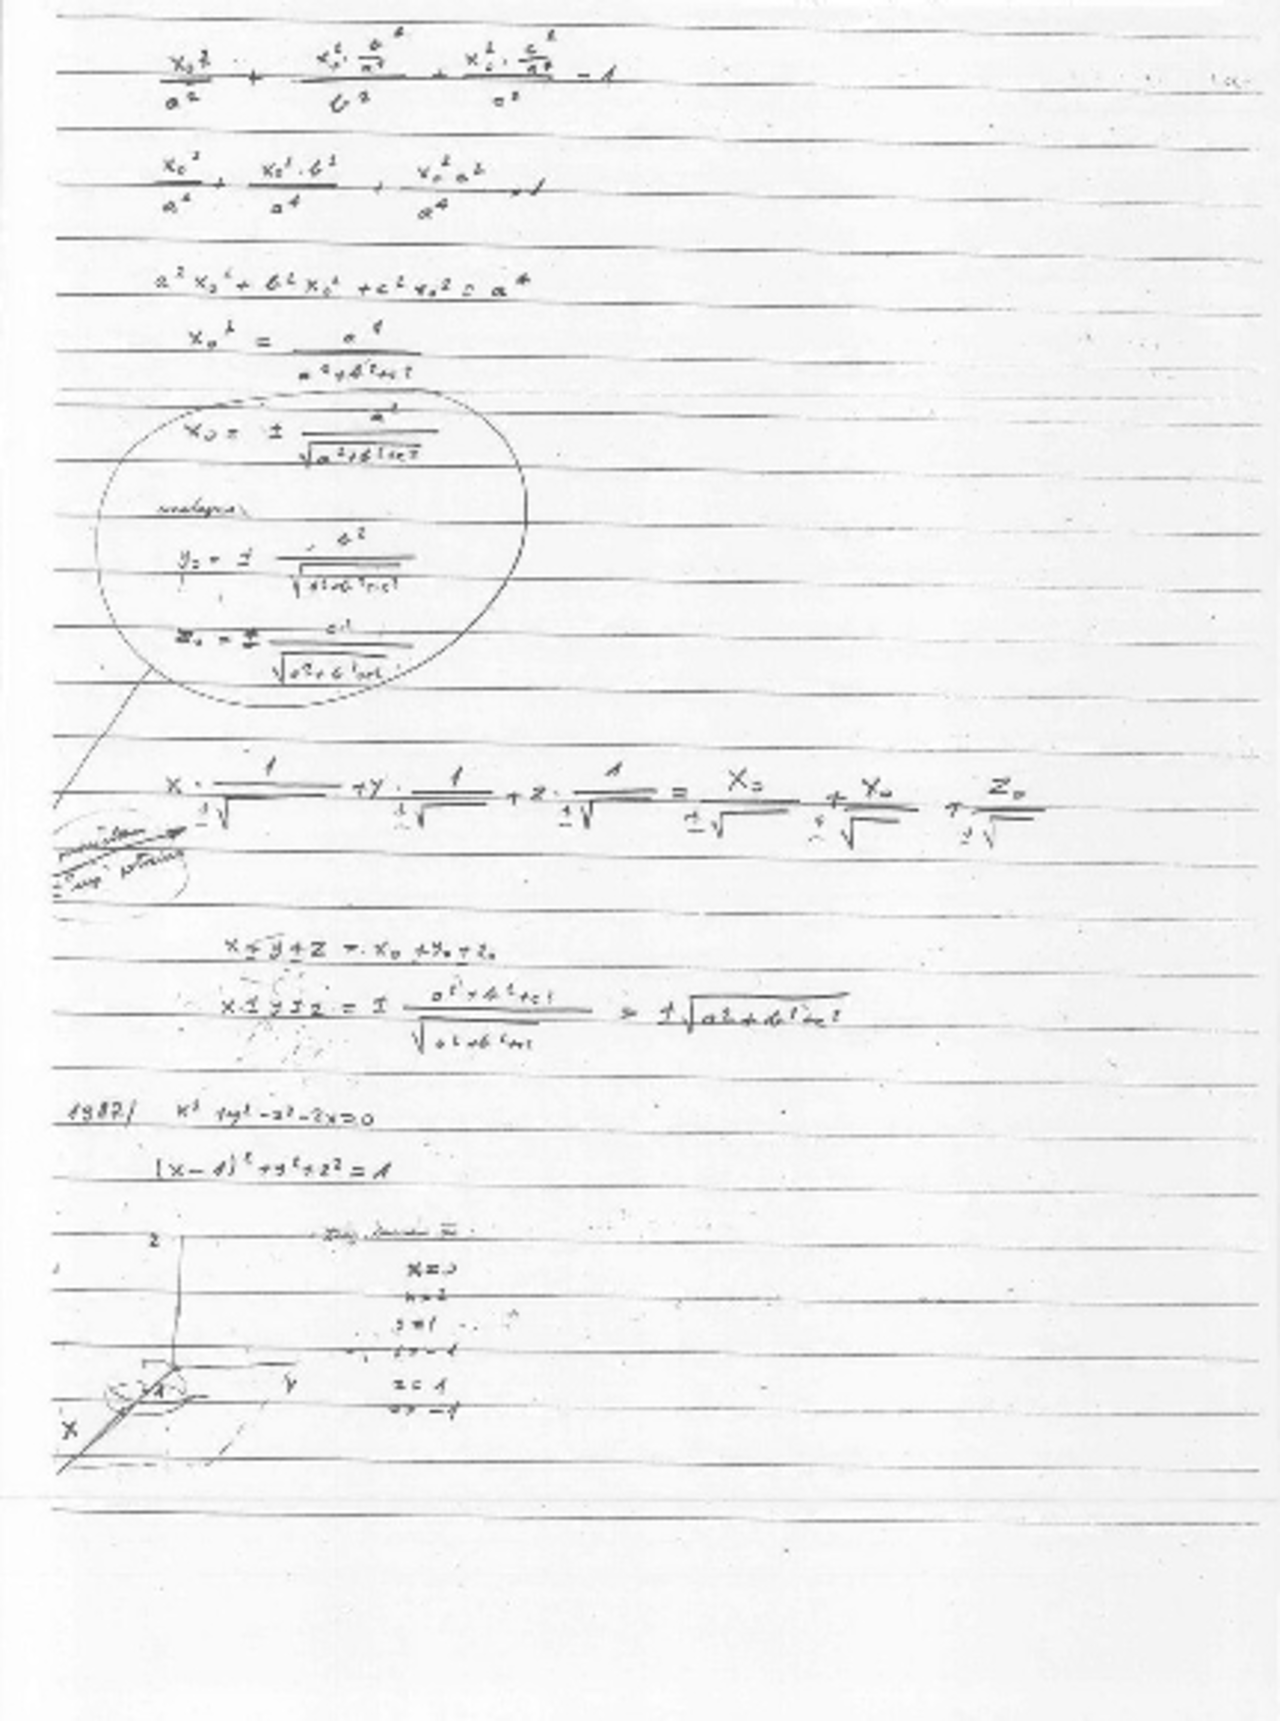 x₀²/a² + (x₀² · b⁴/a⁴)/b² + (x₀² · c⁴/a⁴)/c² = 1
x₀²/a² + x₀² · b²/a⁴ + x₀² c²/a⁴ = 1
a² x₀² + b² x₀² + c² x₀² = a⁴
x₀² = a⁴/(a²+b²+c²)
x₀ = ± a²/√(a²+b²+c²)
y₀ = ± b²/√(a²+b²+c²)
z₀ = ± c²/√(a²+b²+c²)
x · 1/±√ + y · 1/±√ + z · 1/±√ = x₀/±√ + y₀/±√ + z₀/±√
x ± y ± z = x₀ ± y₀ ± z₀
x ± y ± z = ± (a²+b²+c²)/√(a²+b²+c²) = ±√(a²+b²+c²)
1987/ x² + y² - z² - 2x = 0
(x-1)² + y² + z² = 1
z
x = 0
x = 2
y = 1
y = -1
z = 1
z = -1
y
x